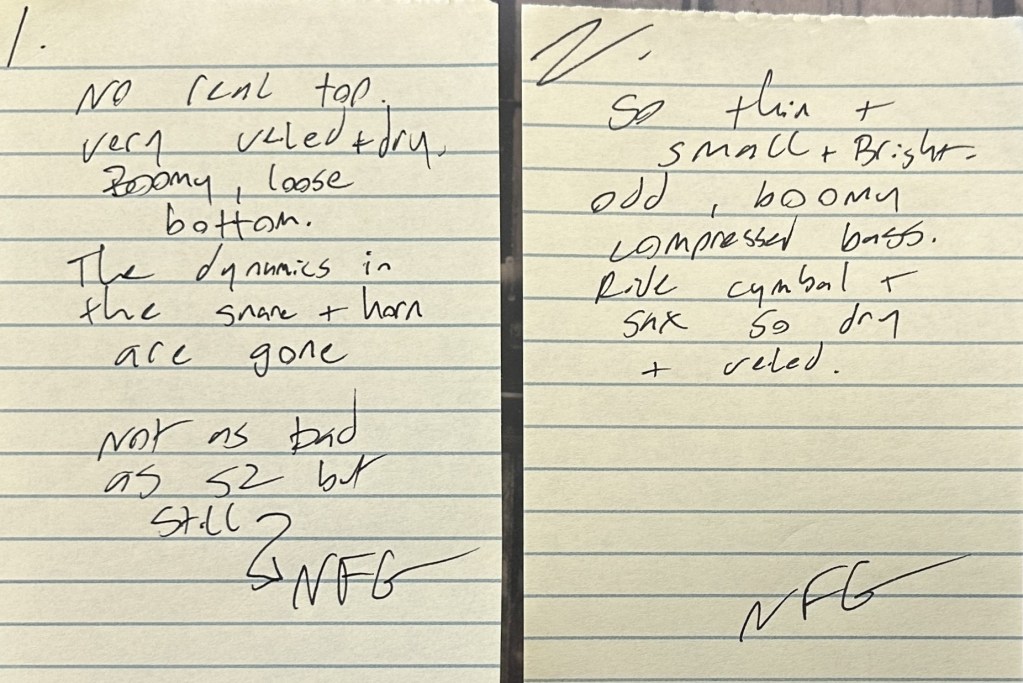 1.
No real top.
very veled + dry.
Boomy, loose
bottom.
The dynamics in
the snare + horn
are gone
Not as bad
as S2 but
still
NFG
2.
So thin +
small + Bright.
odd, boomy
compressed bass.
Ride cymbal +
sax so dry
+ veled.
NFG